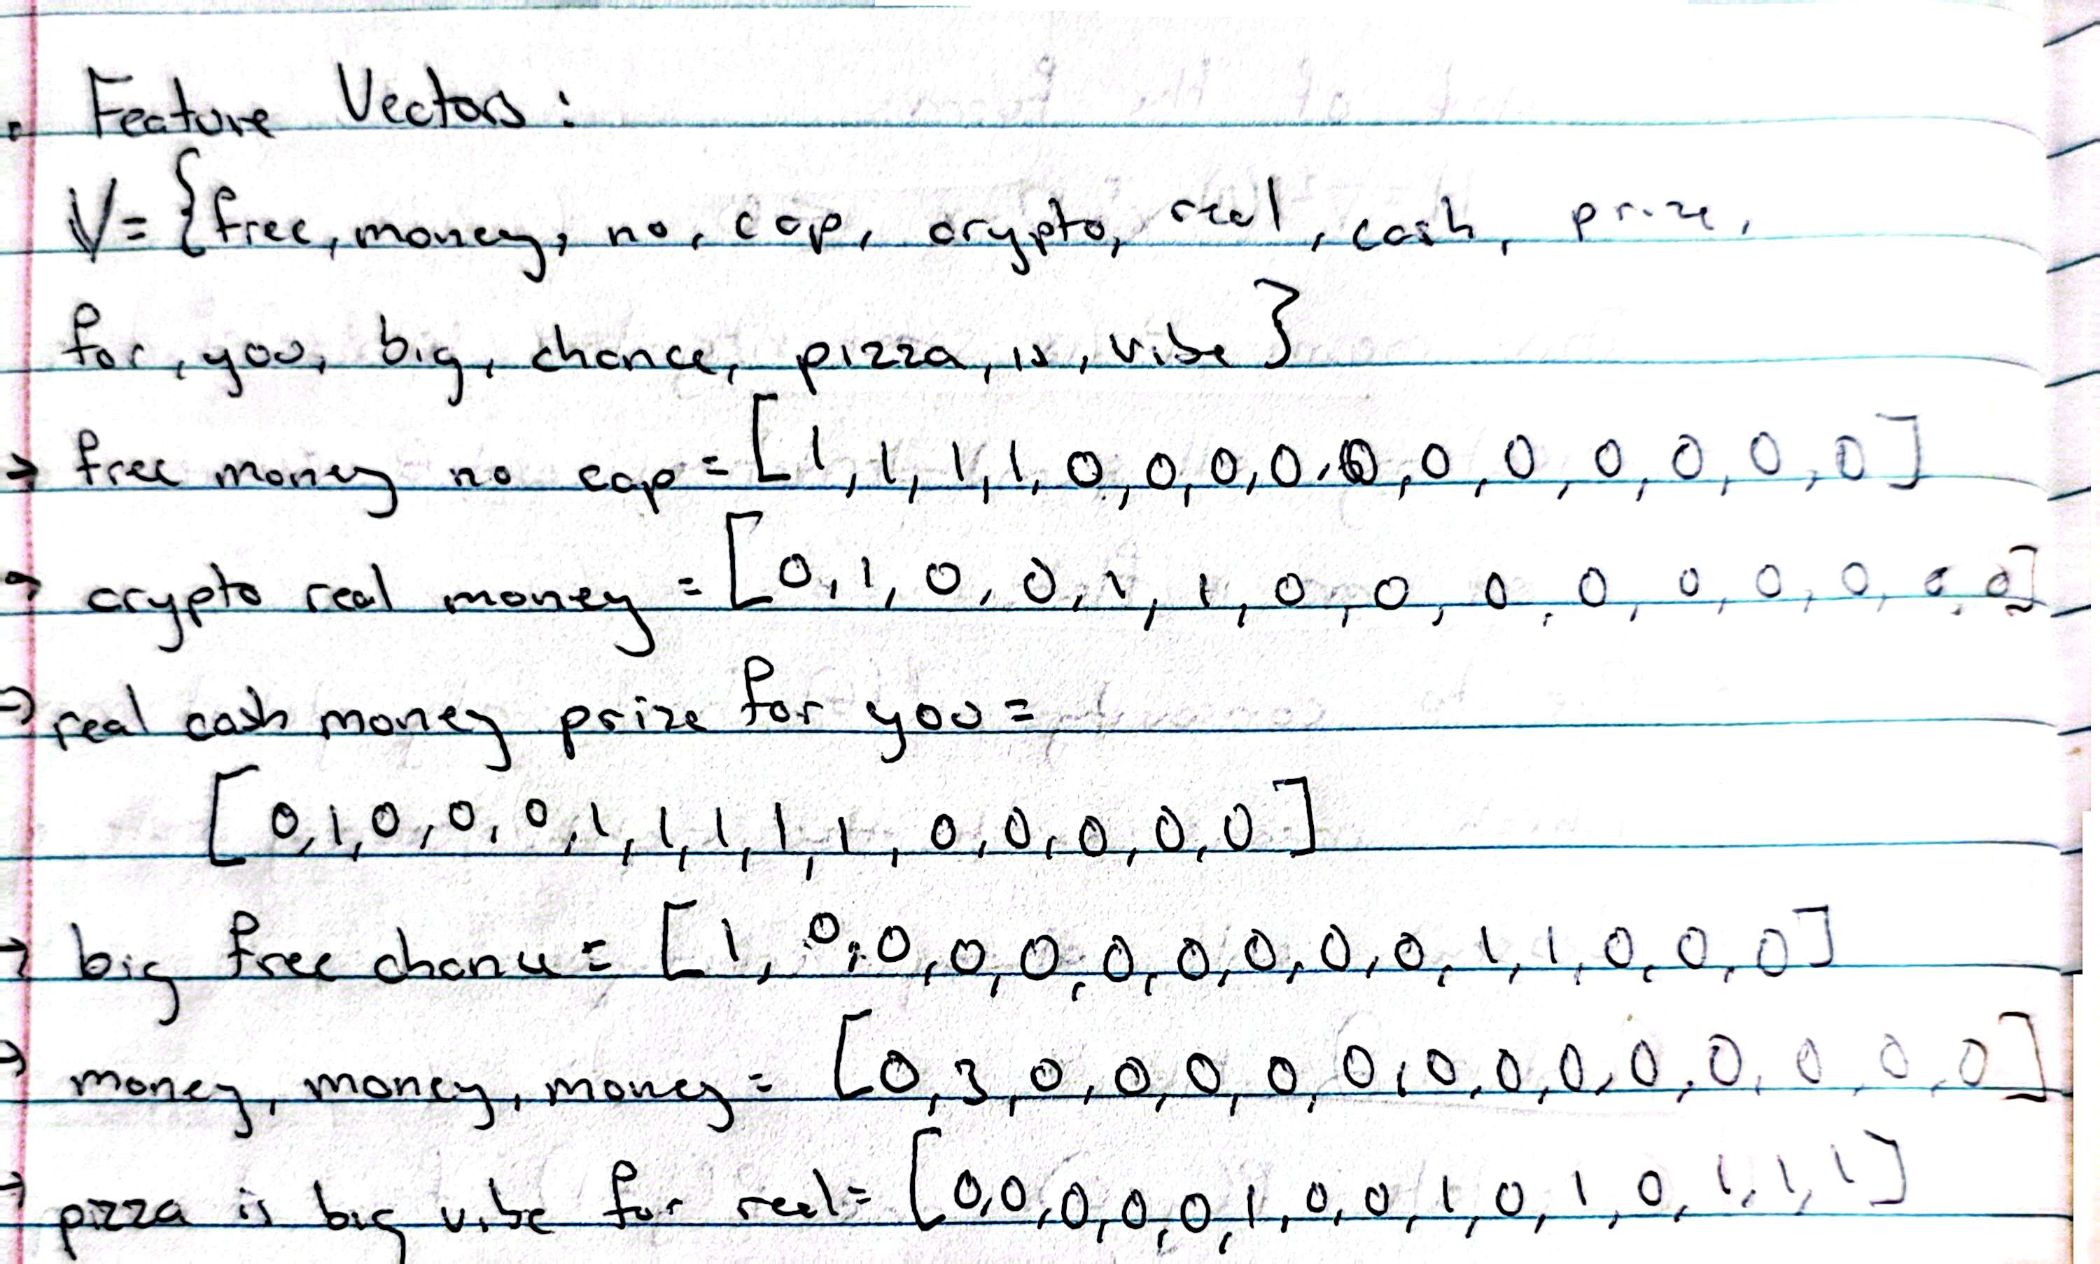 Feature Vectors:
V= {free, money, no, cap, crypto, real, cash, prize,
for, you, big, chance, pizza, is, vibe}
→ free money no cap = [1, 1, 1, 1, 0, 0, 0, 0, 0, 0, 0, 0, 0, 0, 0]
→ crypto real money = [0, 1, 0, 0, 1, 1, 0, 0, 0, 0, 0, 0, 0, 0, 0]
→ real cash money prize for you =
[0, 1, 0, 0, 0, 1, 1, 1, 1, 1, 0, 0, 0, 0, 0]
→ big free chance = [1, 0, 0, 0, 0, 0, 0, 0, 0, 0, 1, 1, 0, 0, 0]
→ money, money, money = [0, 3, 0, 0, 0, 0, 0, 0, 0, 0, 0, 0, 0, 0, 0]
→ pizza is big vibe for real = [0, 0, 0, 0, 0, 1, 0, 0, 1, 0, 1, 0, 1, 1, 1]